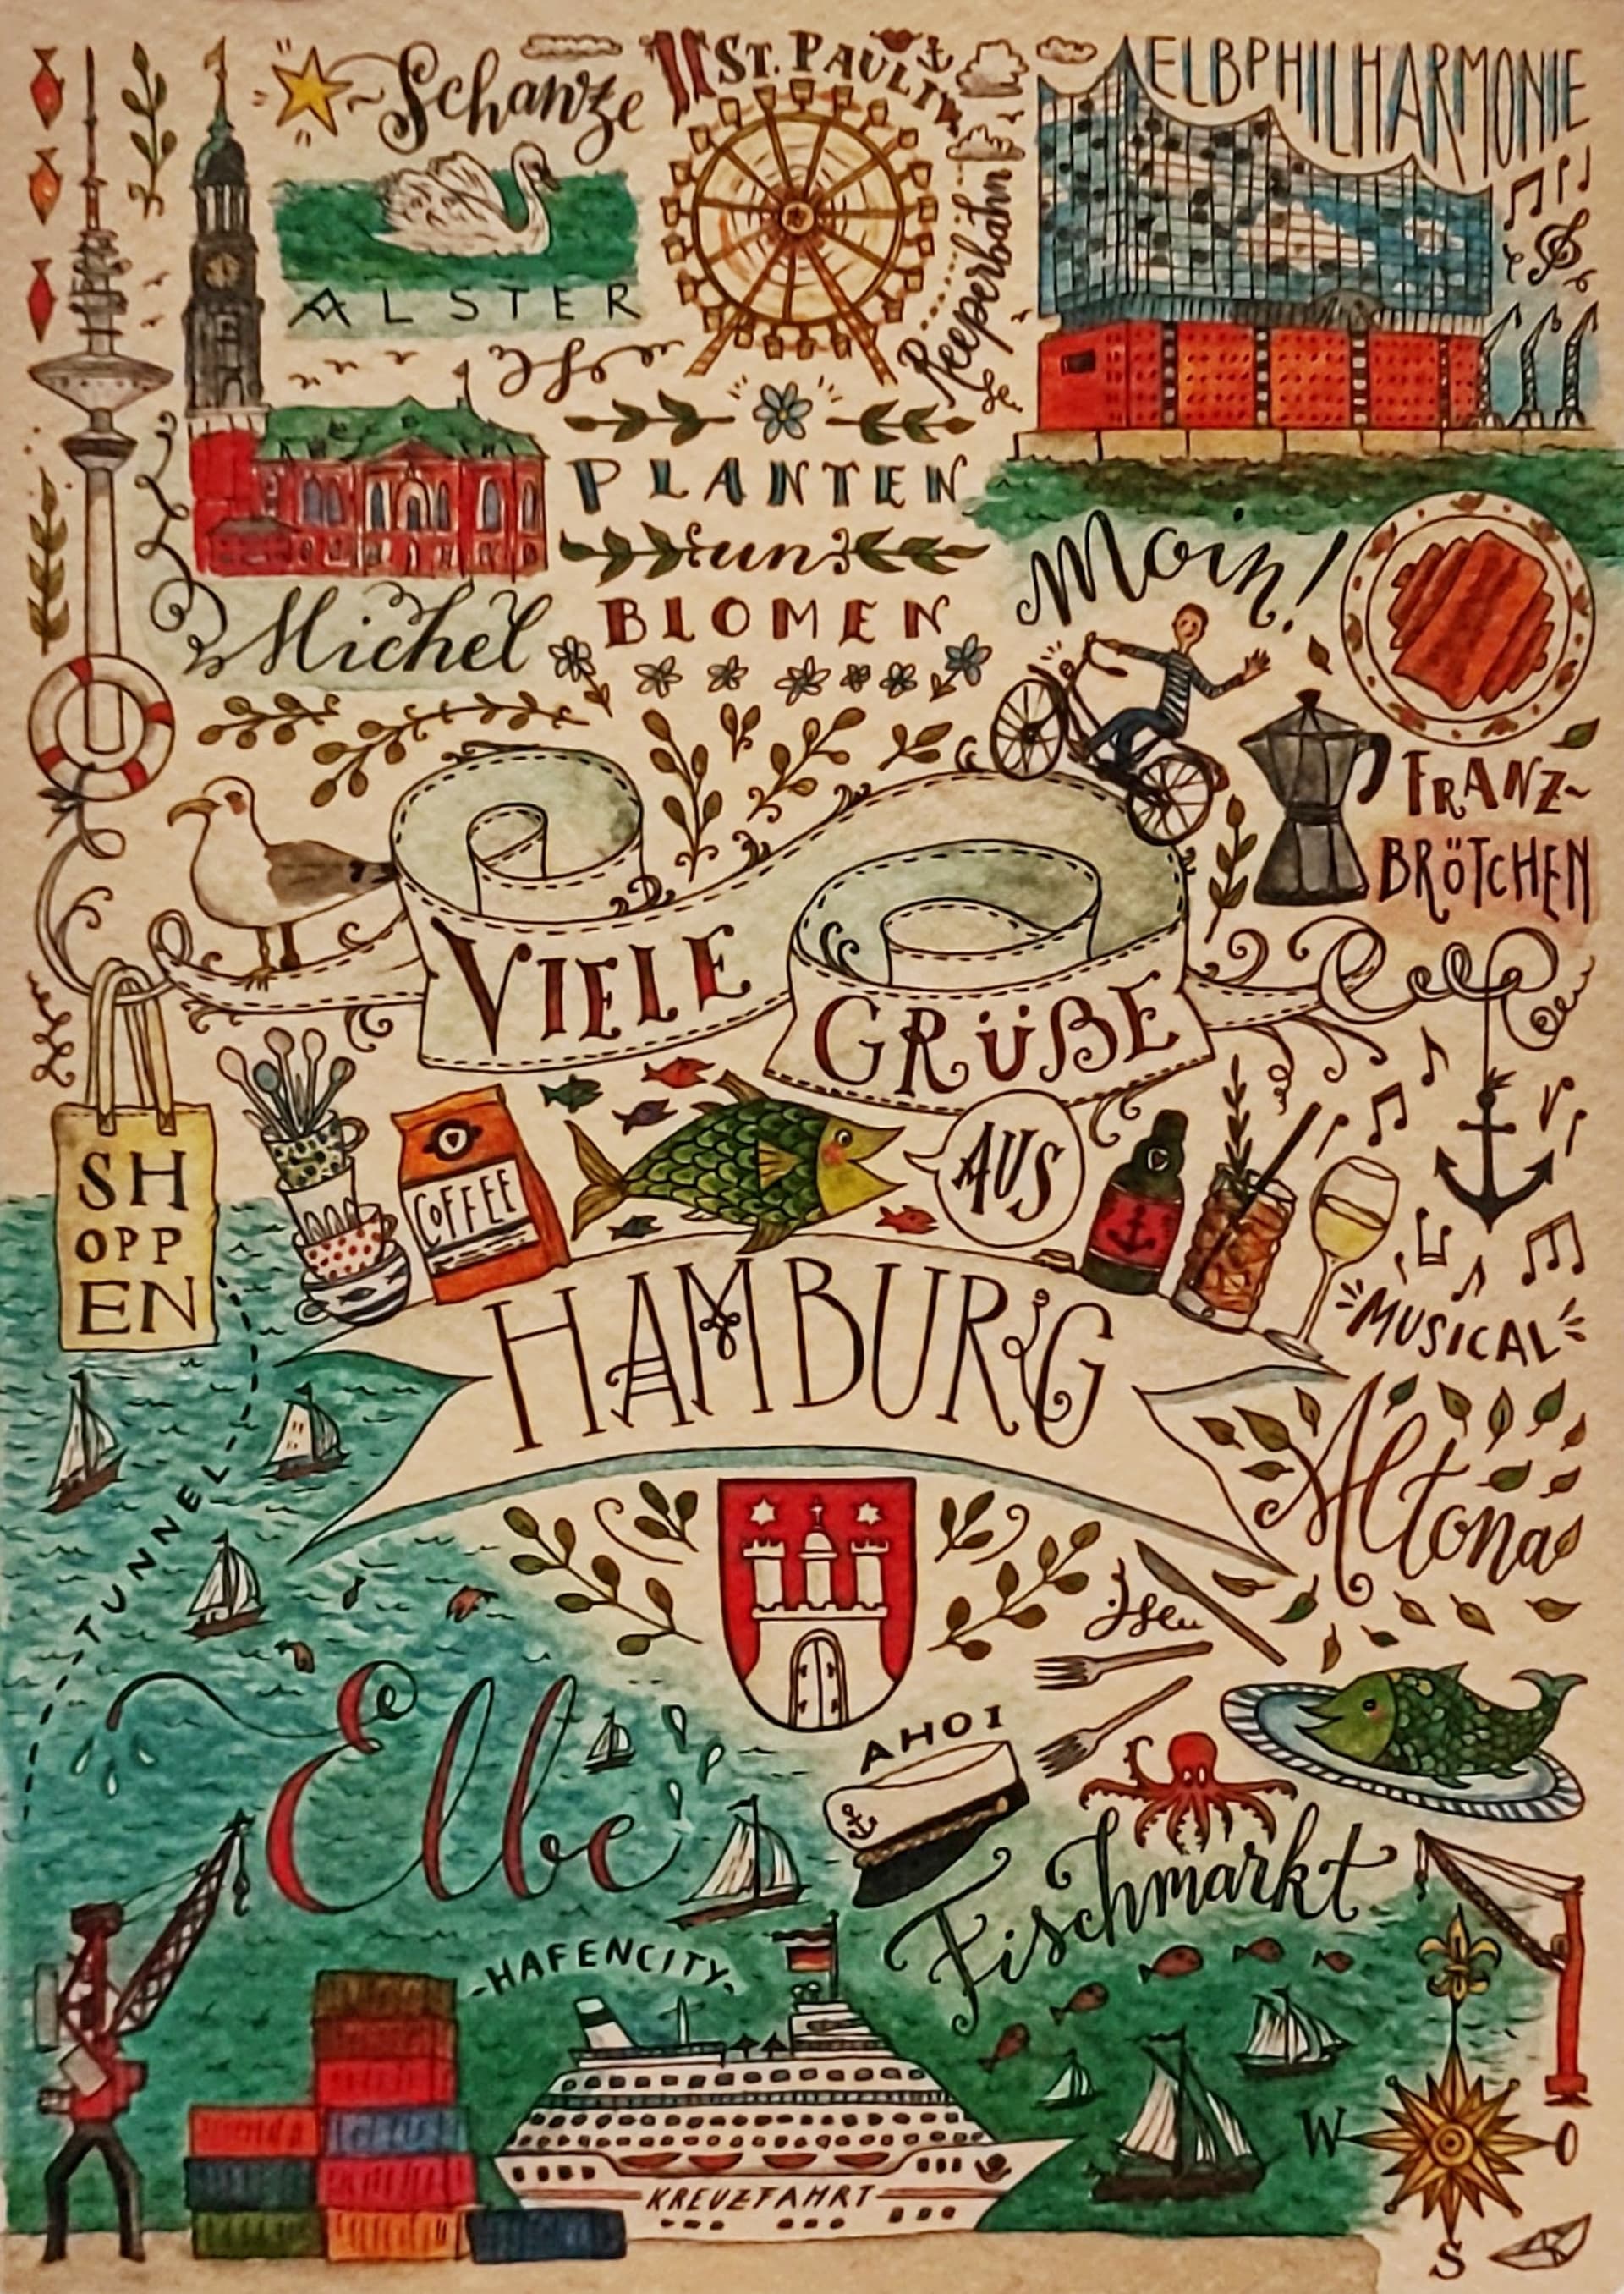 Schanze
ST. PAULI
ELBPHILHARMONIE
ALSTER
Reeperbahn
PLANTEN
un
BLOMEN
Michel
Moin!
FRANZ-
BRÖTCHEN
VIELE
GRÜßE
SH
OPP
EN
COFFEE
AUS
HAMBURG
MUSICAL
Altona
TUNNEL
Elbe
AHOI
Fischmarkt
HAFENCITY
KREUZFAHRT
W
O
S